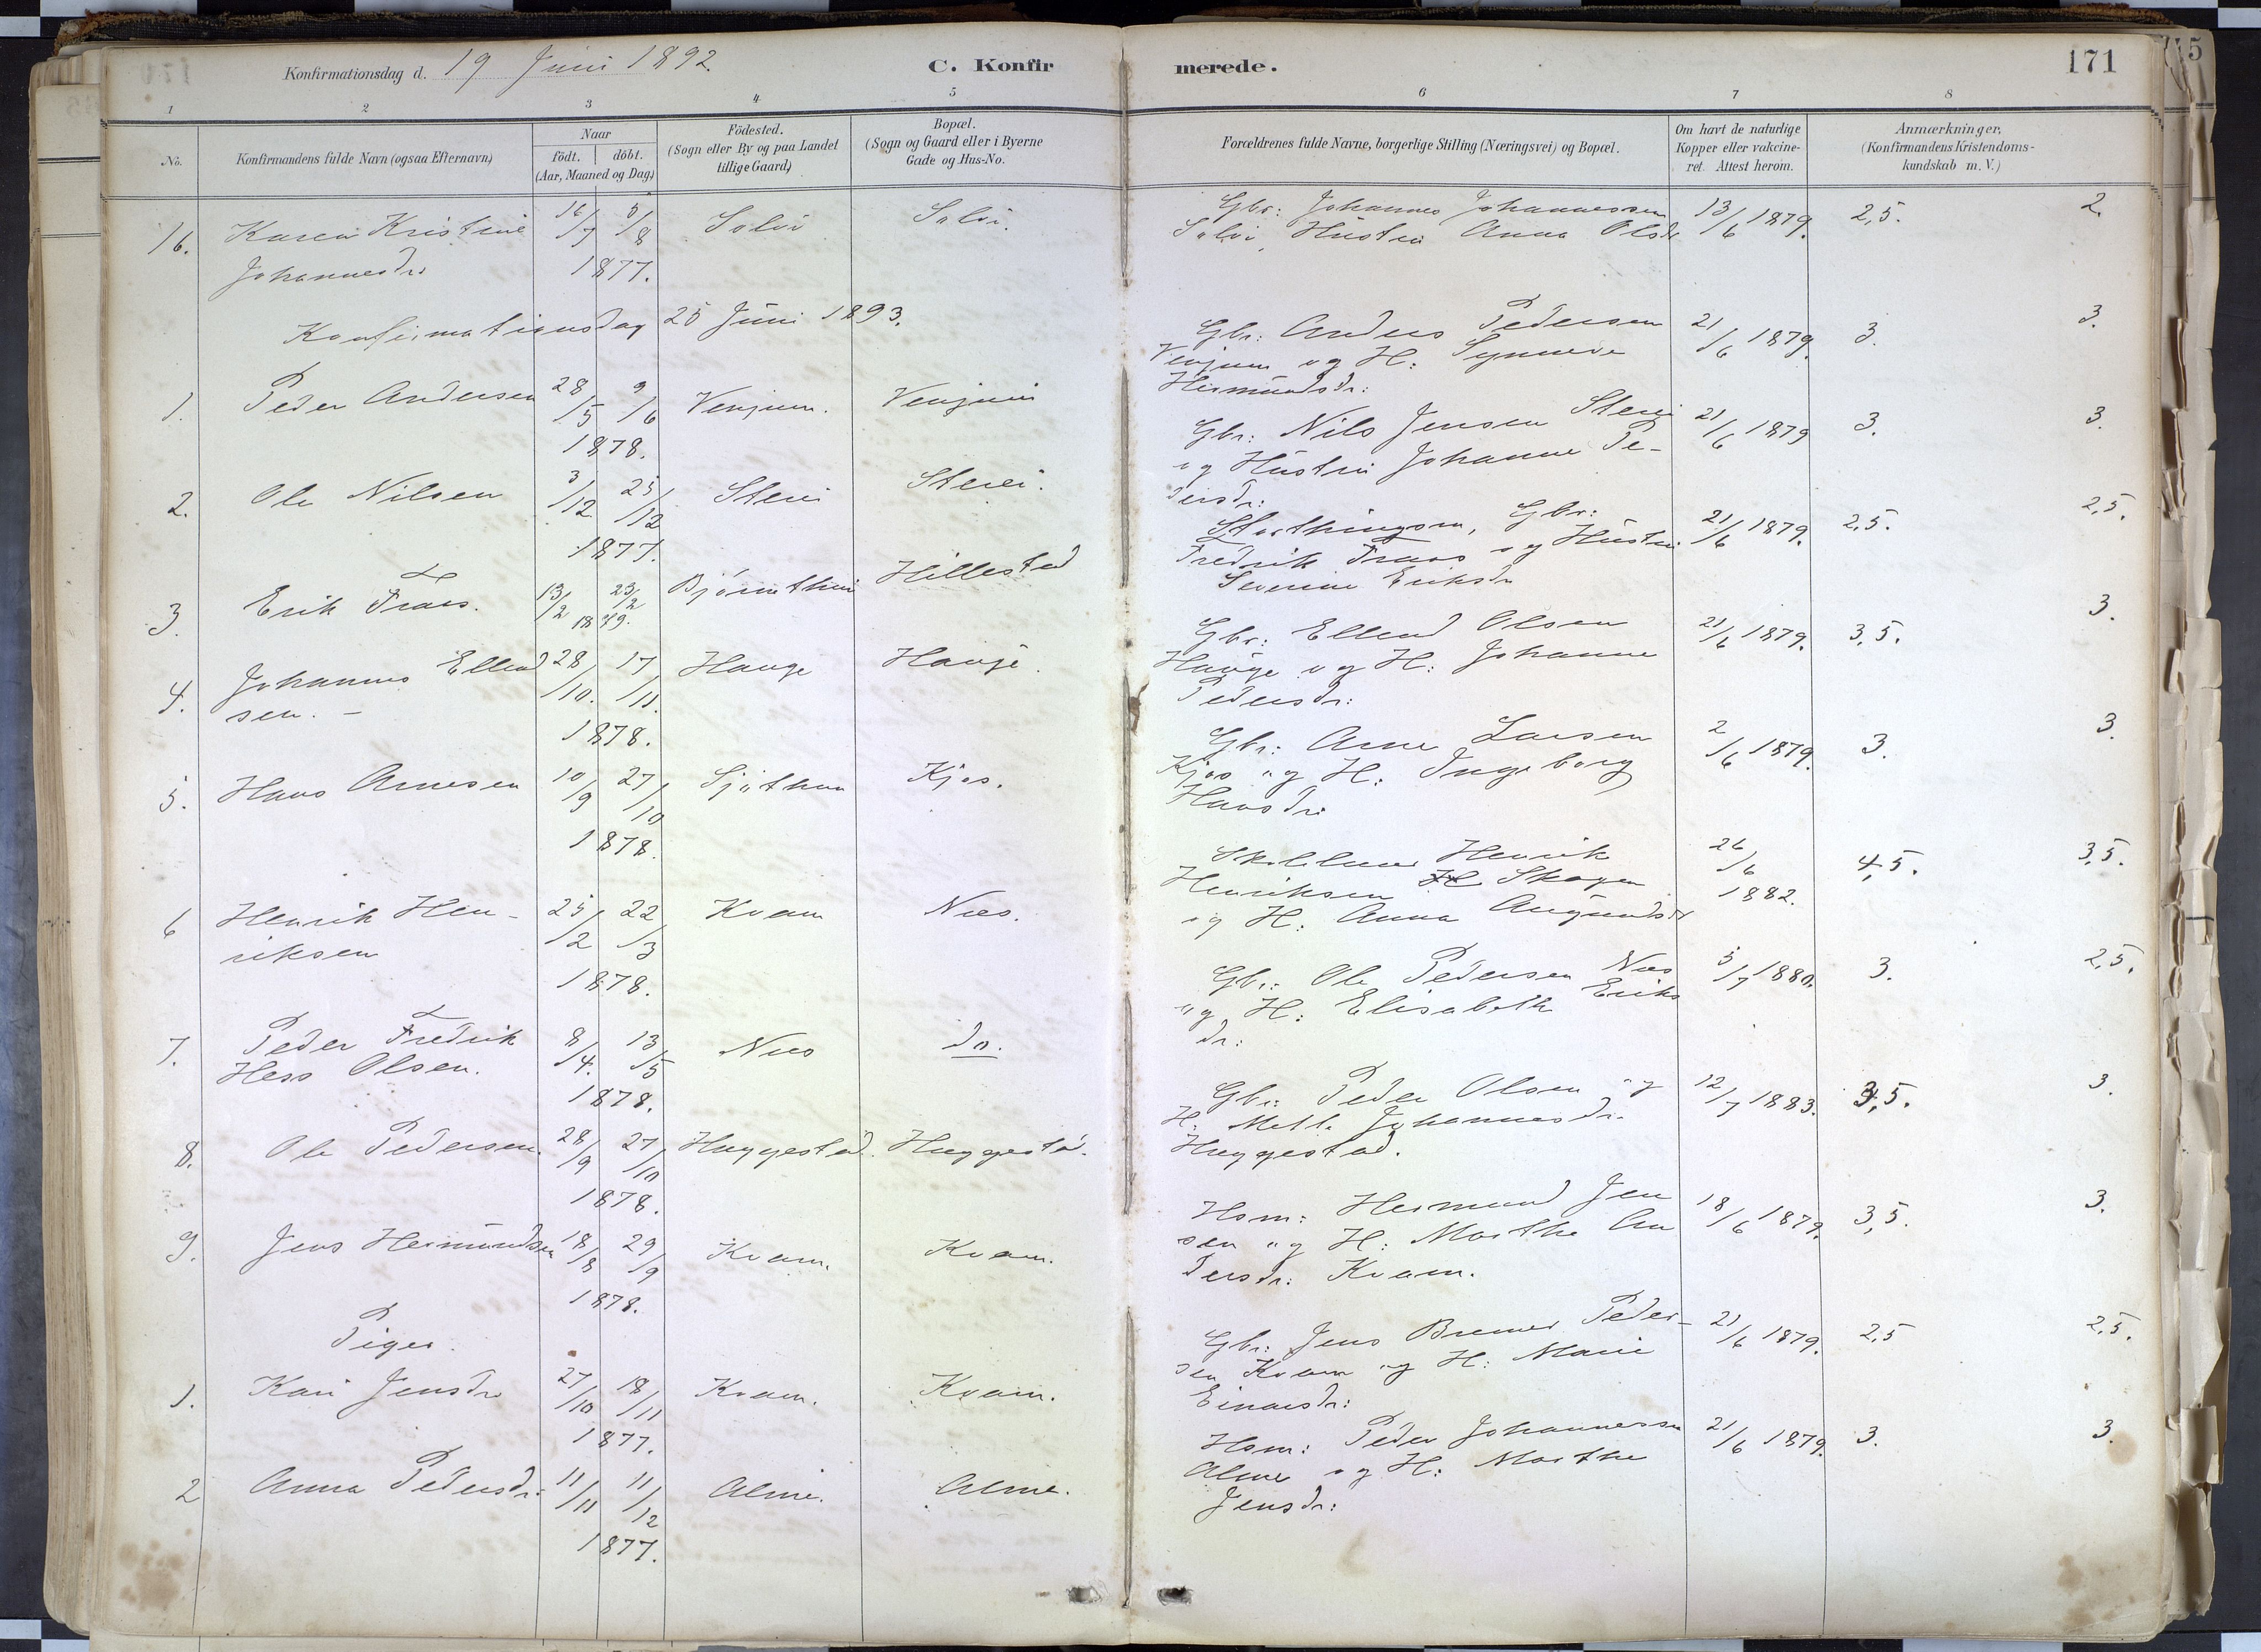 Konfirmationsdag d. 19 Juni 1892.
C. Konfirmerede.
171
1 2 3 4 5 6 7 8
No.
Konfirmandens fulde Navn (ogsaa Efternavn)
Naar
födt. döbt.
(Aar, Maaned og Dag)
Födested.
(Sogn eller By og paa Landet
tillige Gaard)
Bopæl.
(Sogn og Gaard eller i Byerne
Gade og Hus-No.
Forældrenes fulde Navne, borgerlige Stilling (Næringsvei) og Bopæl.
Om havt de naturlige
Kopper eller vakcine-
ret. Attest herom.
Anmærkninger,
(Konfirmandens Kristendoms-
kundskab m. V.)
16. Karen Kristine 16/7 5/8 Solvi Solvi. Gbr: Johannes Johannessen 13/6 1879. 2,5. 2.
Johannesdr 1877. Solvi, Hustru Anna Olsdr
Konfirmationsdag 25 Juni 1893.
1. Peder Andersen 28/5 9/6 Venjum. Venjum Gbr: Anders Pedersen 21/6 1879. 3. 3.
1878. Venjum og H: Synneve
Hermundsdr:
2. Ole Nilsen 3/12 25/12 Steri Steri. Gbr: Nils Jensen Steri 21/6 1879 3. 3.
1877. og Hustru Johanne Pe-
dersdr:
3. Erik Fraas. 13/2 23/2 1879. Hillestad Storthingsm, Gbr: 21/6 1879. 2,5. 2,5.
Fredrik Fraas og Hustru
Severine Eriksdr
4. Johannes Ellend 28/10. 17/11. Hauge Hauge. Gbr: Ellend Olsen 21/6 1879. 3,5. 3.
sen. - 1878. Hauge og H: Johanne
Pedersdr:
5. Hans Arnesen 10/9 27/10 Sjøthun Kjos. Gbr: Arne Larsen 2/6 1879. 3. 3.
1878. Kjos og H: Ingeborg
Hansdr:
6 Henrik Hen- 25/2 22/3 Kvam Nees. Henrik 26/6 4,5. 3,5.
riksen 1878. Henriksen Skagen 1882.
og H: Anna
7. Peder Fredrik 8/4. 13/5 Nees do. Gbr: Ole Pedersen Nees 5/7 1880. 3. 2,5.
Hess Olsen. 1878. og H: Elisabeth Eriks
dr:
8. Ole Pedersen. 28/9 27/10 Huggestad. Huggestd. Gbr: Peder Olsen og 12/7 1883. 3,5. 3.
1878. H: Mette Johannesdr.
Huggestad.
9. Jens Hermundsen 18/8 29/9 Kvam. Kvam. Hsm: Hermund Jen 18/6 1879. 3,5. 3.
1878. sen og H: Marthe An
dersdr: Kvam.
Piger.
1. Kari Jensdr 27/10 18/11 Kvam. Kvam. Gbr: Jens Bremer Peder- 21/6 1879. 2,5 2,5.
1877. sen Kvam og H: Marie
Einarsdr:
2 Anna Pedersdr. 11/11 11/12 Alme. Alme. Hsm: Peder Johannessen 21/6 1879. 3. 3.
1877. Alme og H: Marthe
Jensdr: